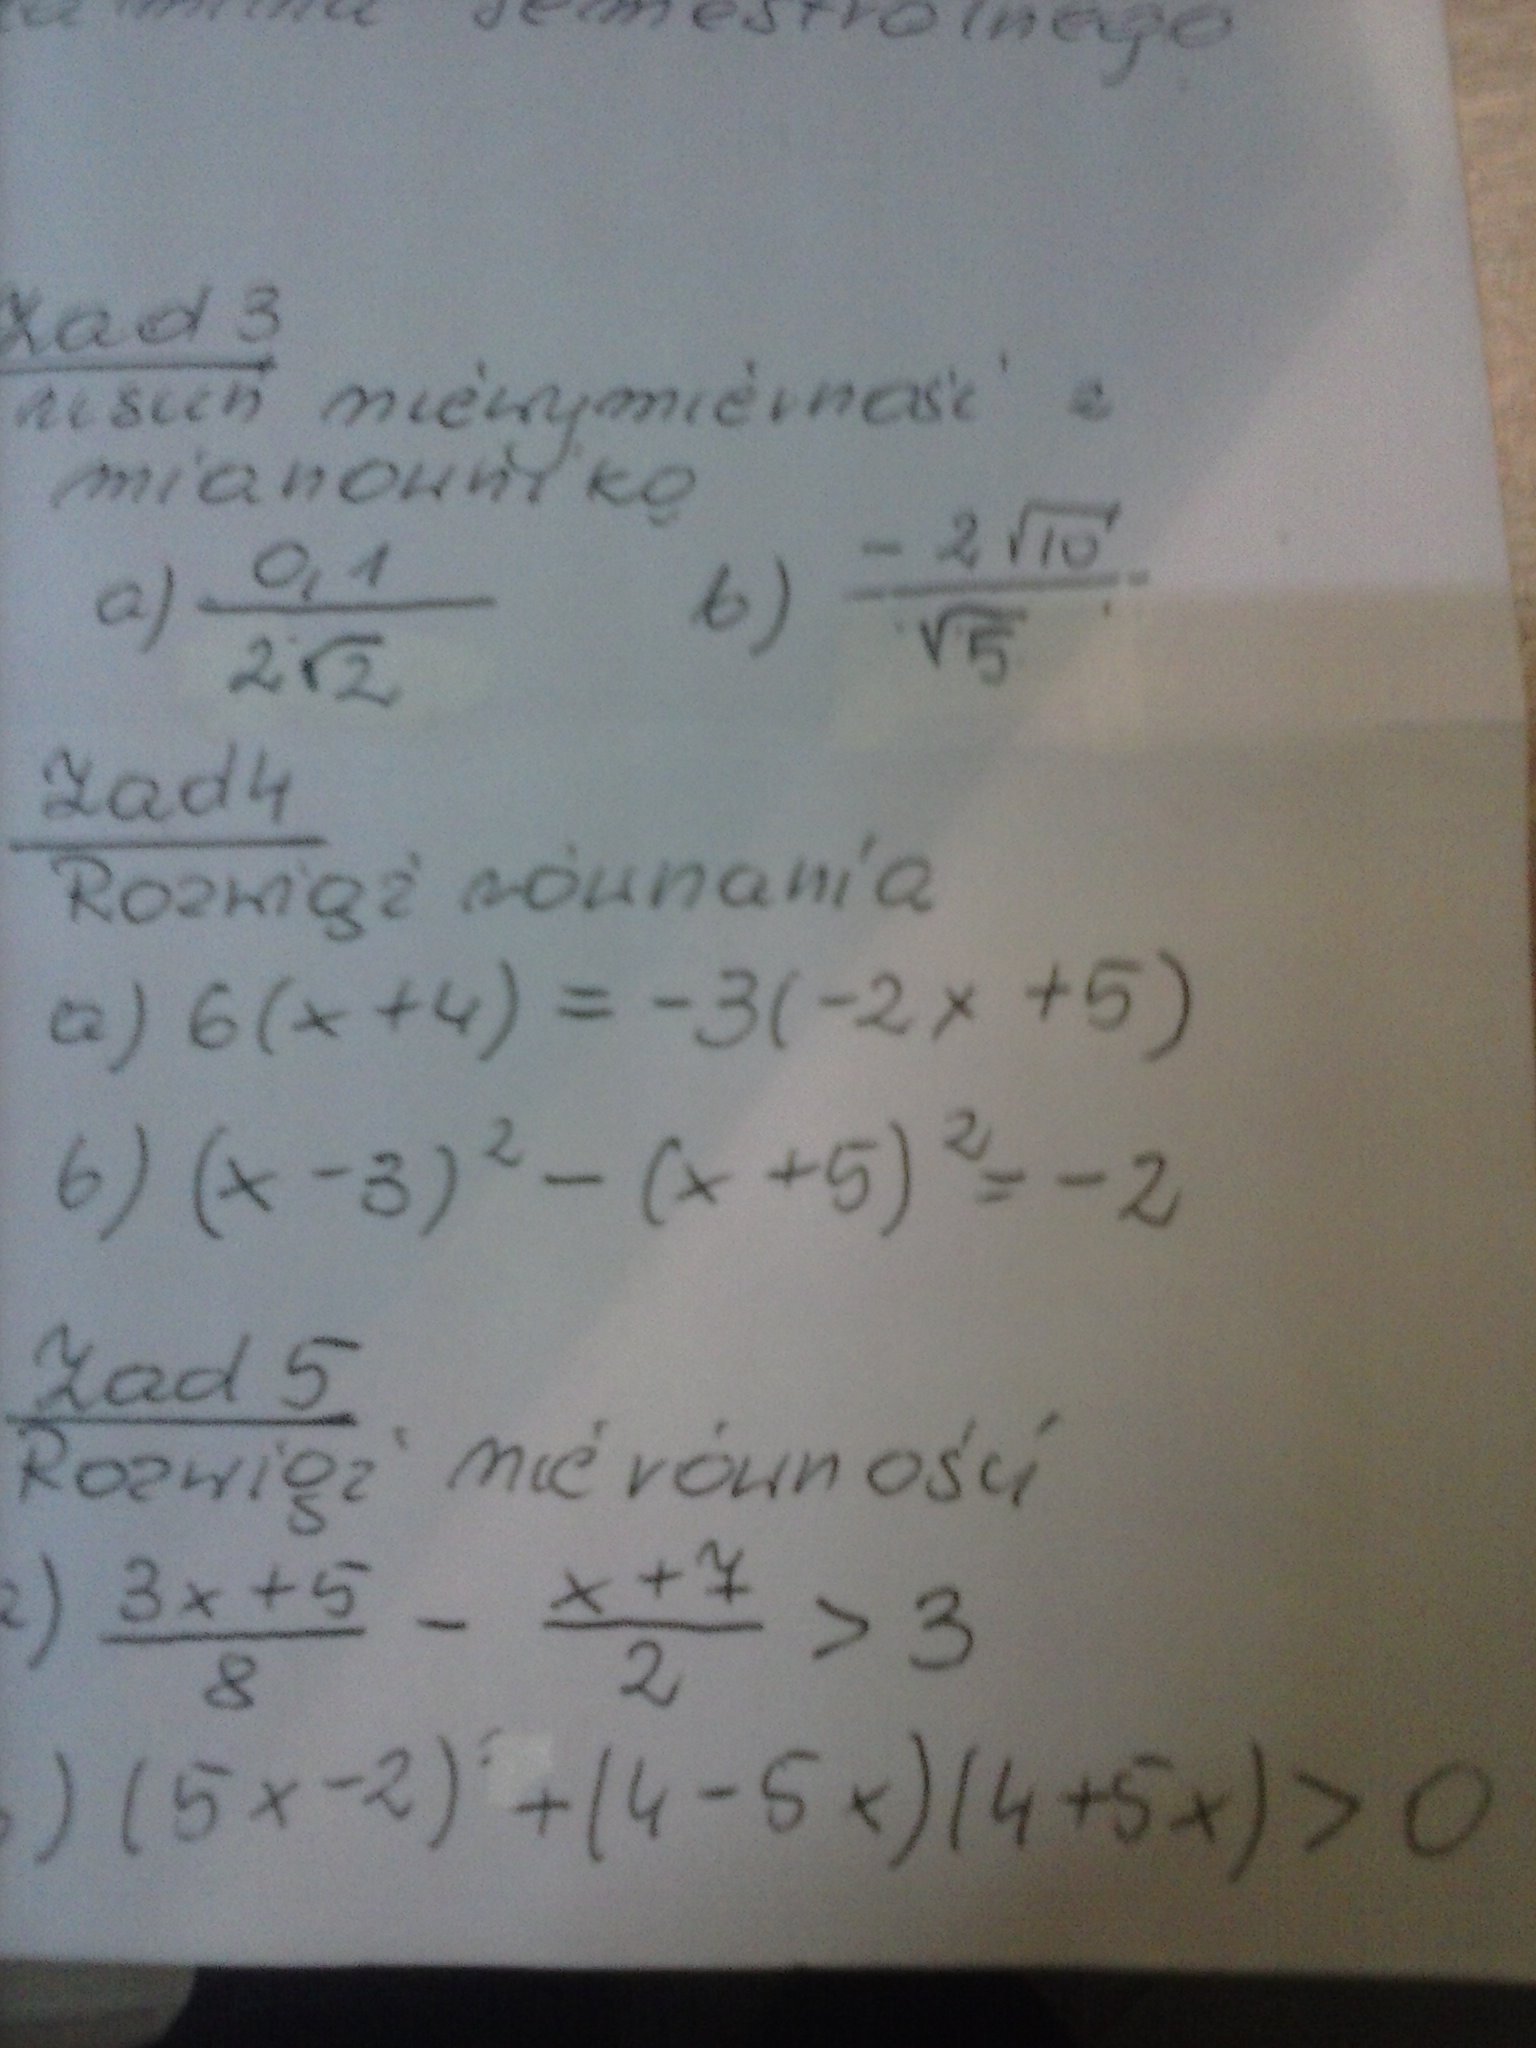 semestralnego
Zad 3
usuń niewymierność z
mianownika
a) 0,1 / 2√2 b) -2√10 / √5
Zad 4
Rozwiąż równania
a) 6(x+4) = -3(-2x+5)
b) (x-3)² - (x+5)² = -2
Zad 5
Rozwiąż nierówności
a) (3x+5)/8 - (x+7)/2 > 3
b) (5x-2)² + (4-5x)(4+5x) > 0